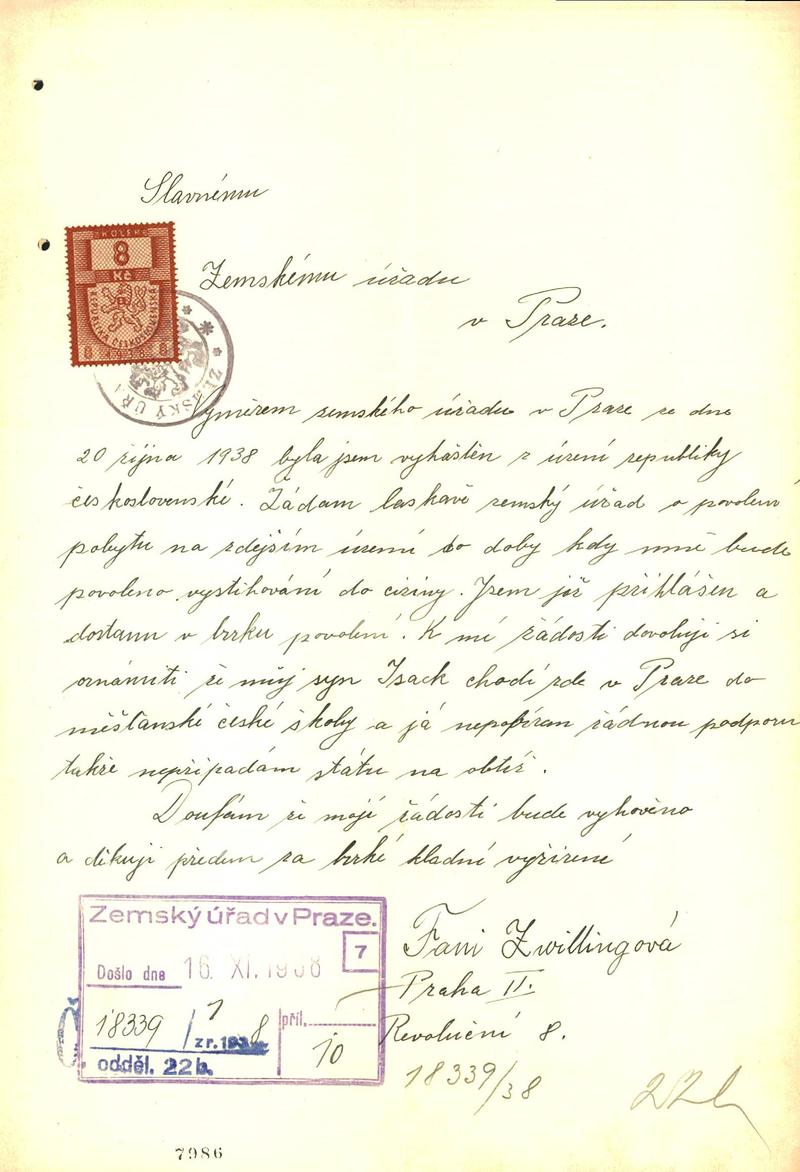 Slavnému
KOLEK
8
Kč
REPUBLIKA ČESKOSLOVENSKÁ
8 1938 8
Zemskému úřadu
v Praze.
ZEMSKÝ ÚŘ
Výměrem zemského úřadu v Praze ze dne
20 října 1938 byla jsem vyháštěn z území republiky
československé. Žádam laskavě zemský úřad o povolení
pobytu na zdejším území do doby kdy mně bude
povoleno vystihování do ciziny. Jsem již přihlášen a
dostanu v brzku povolení. K mé žádosti dovoluji si
oznámiti že můj syn Isack chodí zde v Praze do
měšťanské české školy a já nepobíram žádnou podporu
takže nepřipadám státu na obtíž.
Doufám že mojí žádosti bude vyhověno
a děkuji předem za brzké kladné vyřízené
Fani Zwillingová
Praha II.
Revoluční 8.
18339/38
22b
Zemský úřad v Praze.
7
Došlo dne 16. XI. 1938
18339 / 7 8
z r. 193
příl.
10
odděl. 22b.
7986